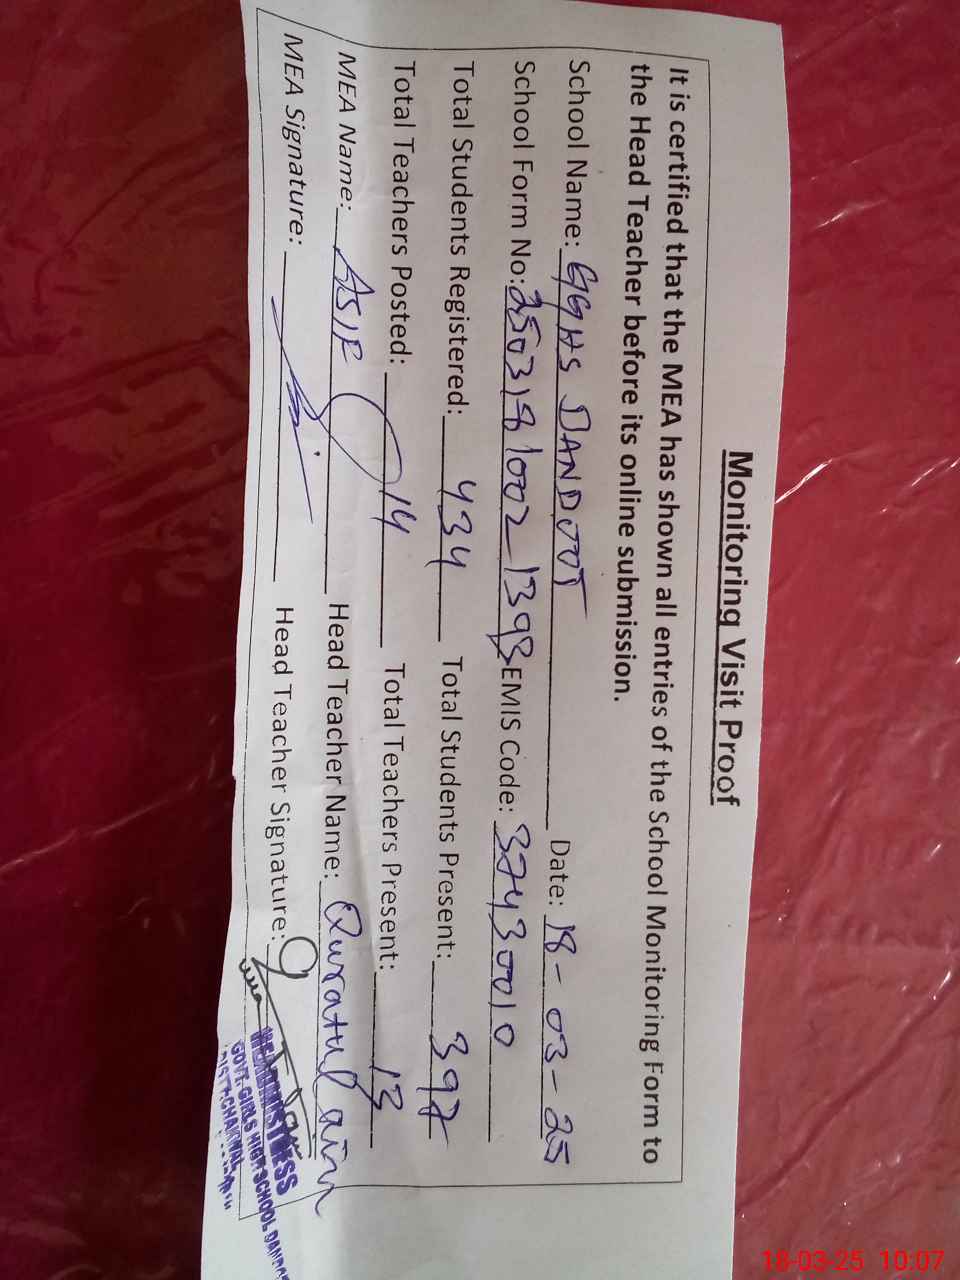 Monitoring Visit Proof
It is certified that the MEA has shown all entries of the School Monitoring Form to
the Head Teacher before its online submission.
School Name: GGHS DANDOOT Date: 18-03-25
School Form No: 250318 1002_1393 EMIS Code: 37430010
Total Students Registered: 434 Total Students Present: 397
Total Teachers Posted: 14 Total Teachers Present: 13
MEA Name: ASIF Head Teacher Name: Quratul ain
MEA Signature: Head Teacher Signature:
HEADMISTRESS
GOVT. GIRLS HIGH SCHOOL DANDOT
DISTT. CHAKWAL
18-03-25 10:07